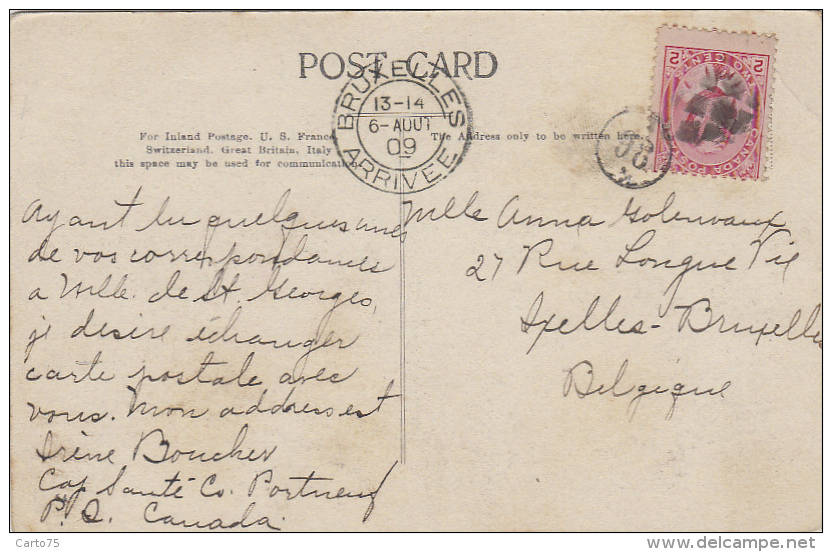 POST CARD
BRUXELLES
13-14
6-AOUT
09
ARRIVEE
For Inland Postage. U. S. France
Switzerland, Great Britain, Italy
this space may be used for communication
The Address only to be written here.
2 TWO CENTS 2
CANADA POSTAGE
Ayant lu quelques unes
de vos correspondances
a Mlle. de St. Georges,
je desire échanger
carte postale avec
vous. Mon address est
Irène Boucher
Cap Santé Co. Portneuf
P. Q. Canada
Mlle Anna
27 Rue Longue Vie
Ixelles-Bruxelles
Belgique
Carto75